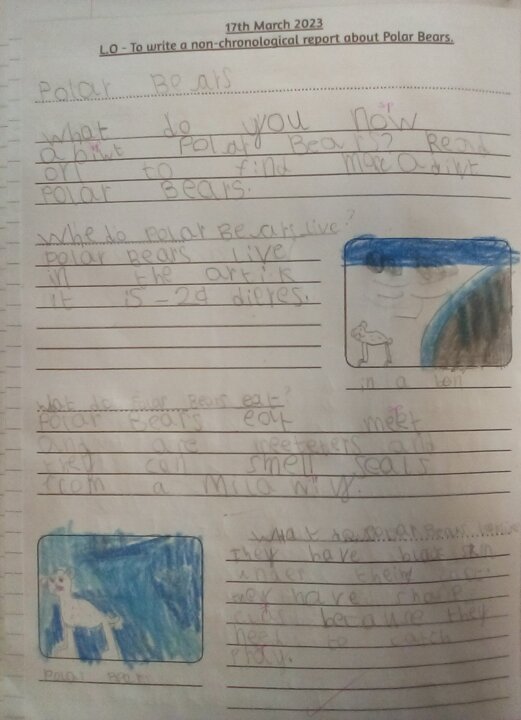 17th March 2023
L.O - To write a non-chronological report about Polar Bears.
Polar Bears
What do you now
sp
abiwt Polar Bears? Read
on to find more adiwt
Polar Bears.
Whe do Polar Bears live?
Polar Bears live
in the artik
it is -20 digres.
in a
What do Polar Bears eat?
Polar Bears eat meet
sp
and are meeteters and
they can smell seals
from a Mila wiy.
What do Polar Bears
They have blac
under their
they have
because they
need to catch
pray.
Polar Bears